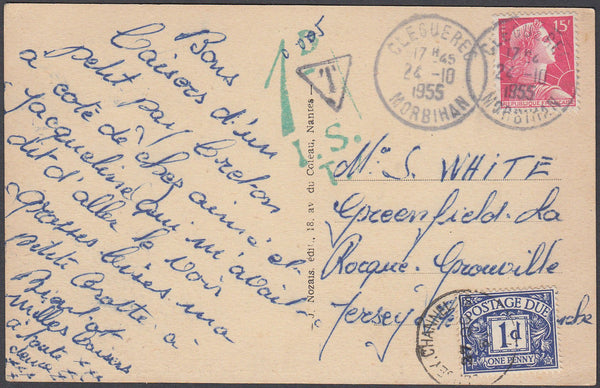 Bons
baisers d'un
petit pays breton
a coté de chez
Jacqueline qui m'avait
dit d'aller le voir
grosses bises ma
petite
à
Bientot
milles baisers
à toute
0.005
1D
T
I.S.
T
CLEGUEREC
17H45
24-10
1955
MORBIHAN
CLEGUEREC
17H45
24-10
1955
MORBIHAN
15F
REPUBLIQUE FRANÇAISE
J. Nozais, édit., 18, av. du Coteau, Nantes
Mrs S. WHITE
Greenfield. La
Rocque. Grouville
Jersey
CHANNEL
POSTAGE DUE
1d
ONE PENNY